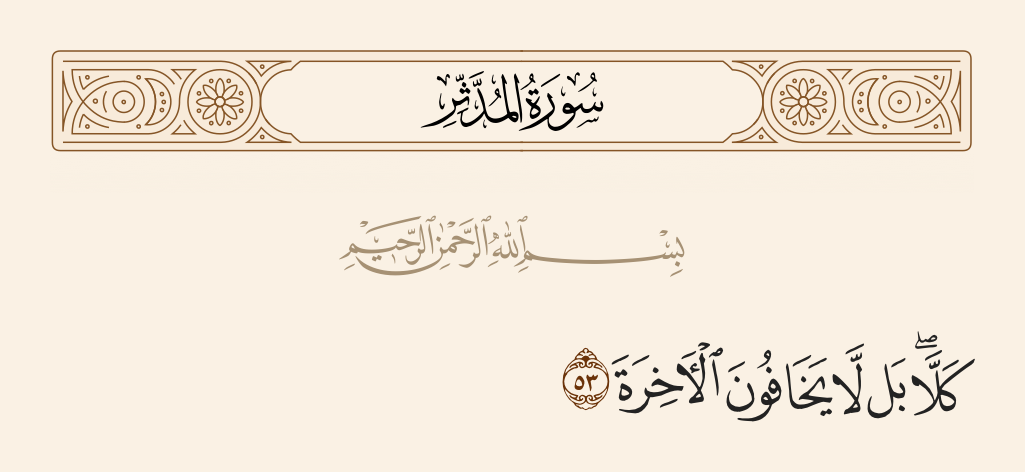 سُورَةُ المُدَّثِّرِ
بِسْمِ ٱللَّهِ ٱلرَّحْمَٰنِ ٱلرَّحِيمِ
كَلَّاۖ بَل لَّا يَخَافُونَ ٱلْأٓخِرَةَ ٥٣